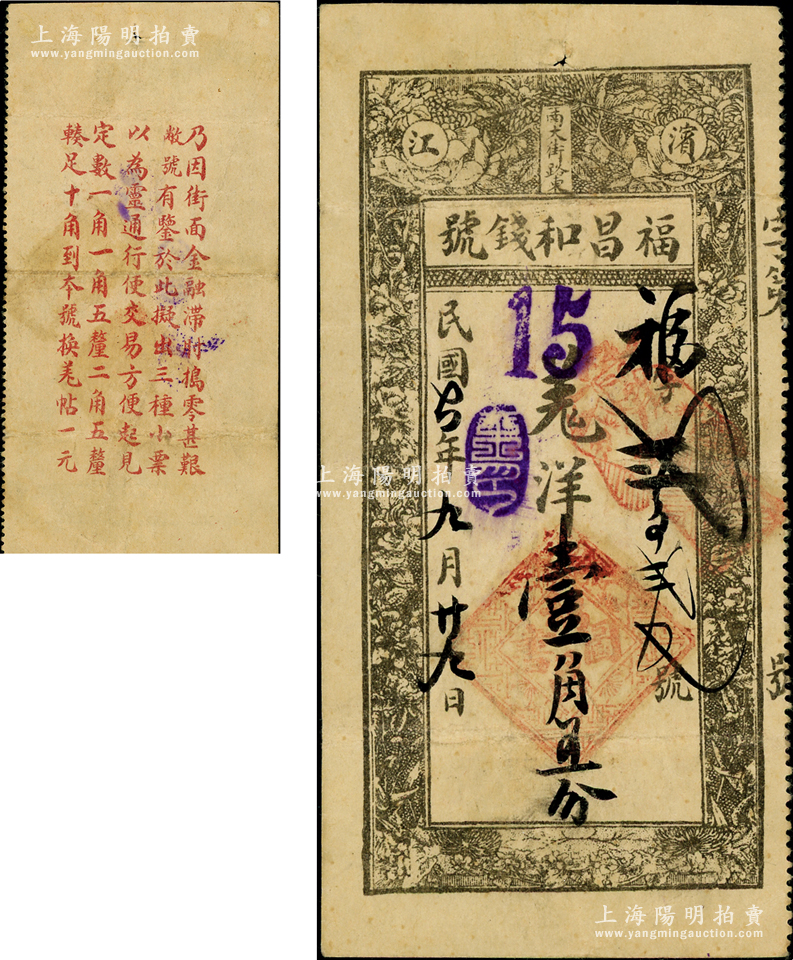 上海陽明拍賣
www.yangmingauction.com
乃因街面金融滯搗零甚艱
敝號有鑒於此擬出三種小票
以為靈通行便交易方便起見
定數一角一角五釐二角五釐
輳足十角到本號換羌帖一元
濱江
南大街路東
福昌和錢號
字第 號
福字 號
15
羌洋壹角五分
民國年九月廿九日
上海陽明拍賣
www.yangmingauction.com
上海陽明拍賣
www.yangmingauction.com